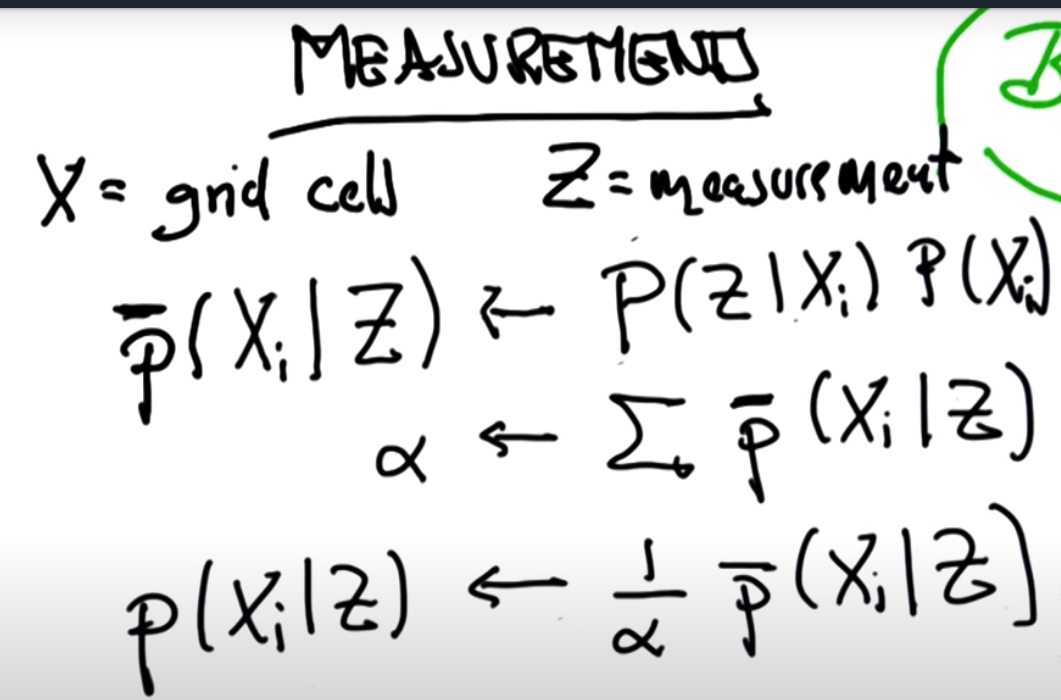 MEASUREMENTS
X = grid cell Z = measurement
p̄(Xᵢ|Z) ← P(Z|Xᵢ) P(Xᵢ)
α ← Σ p̄(Xᵢ|Z)
p(Xᵢ|Z) ← 1/α p̄(Xᵢ|Z)